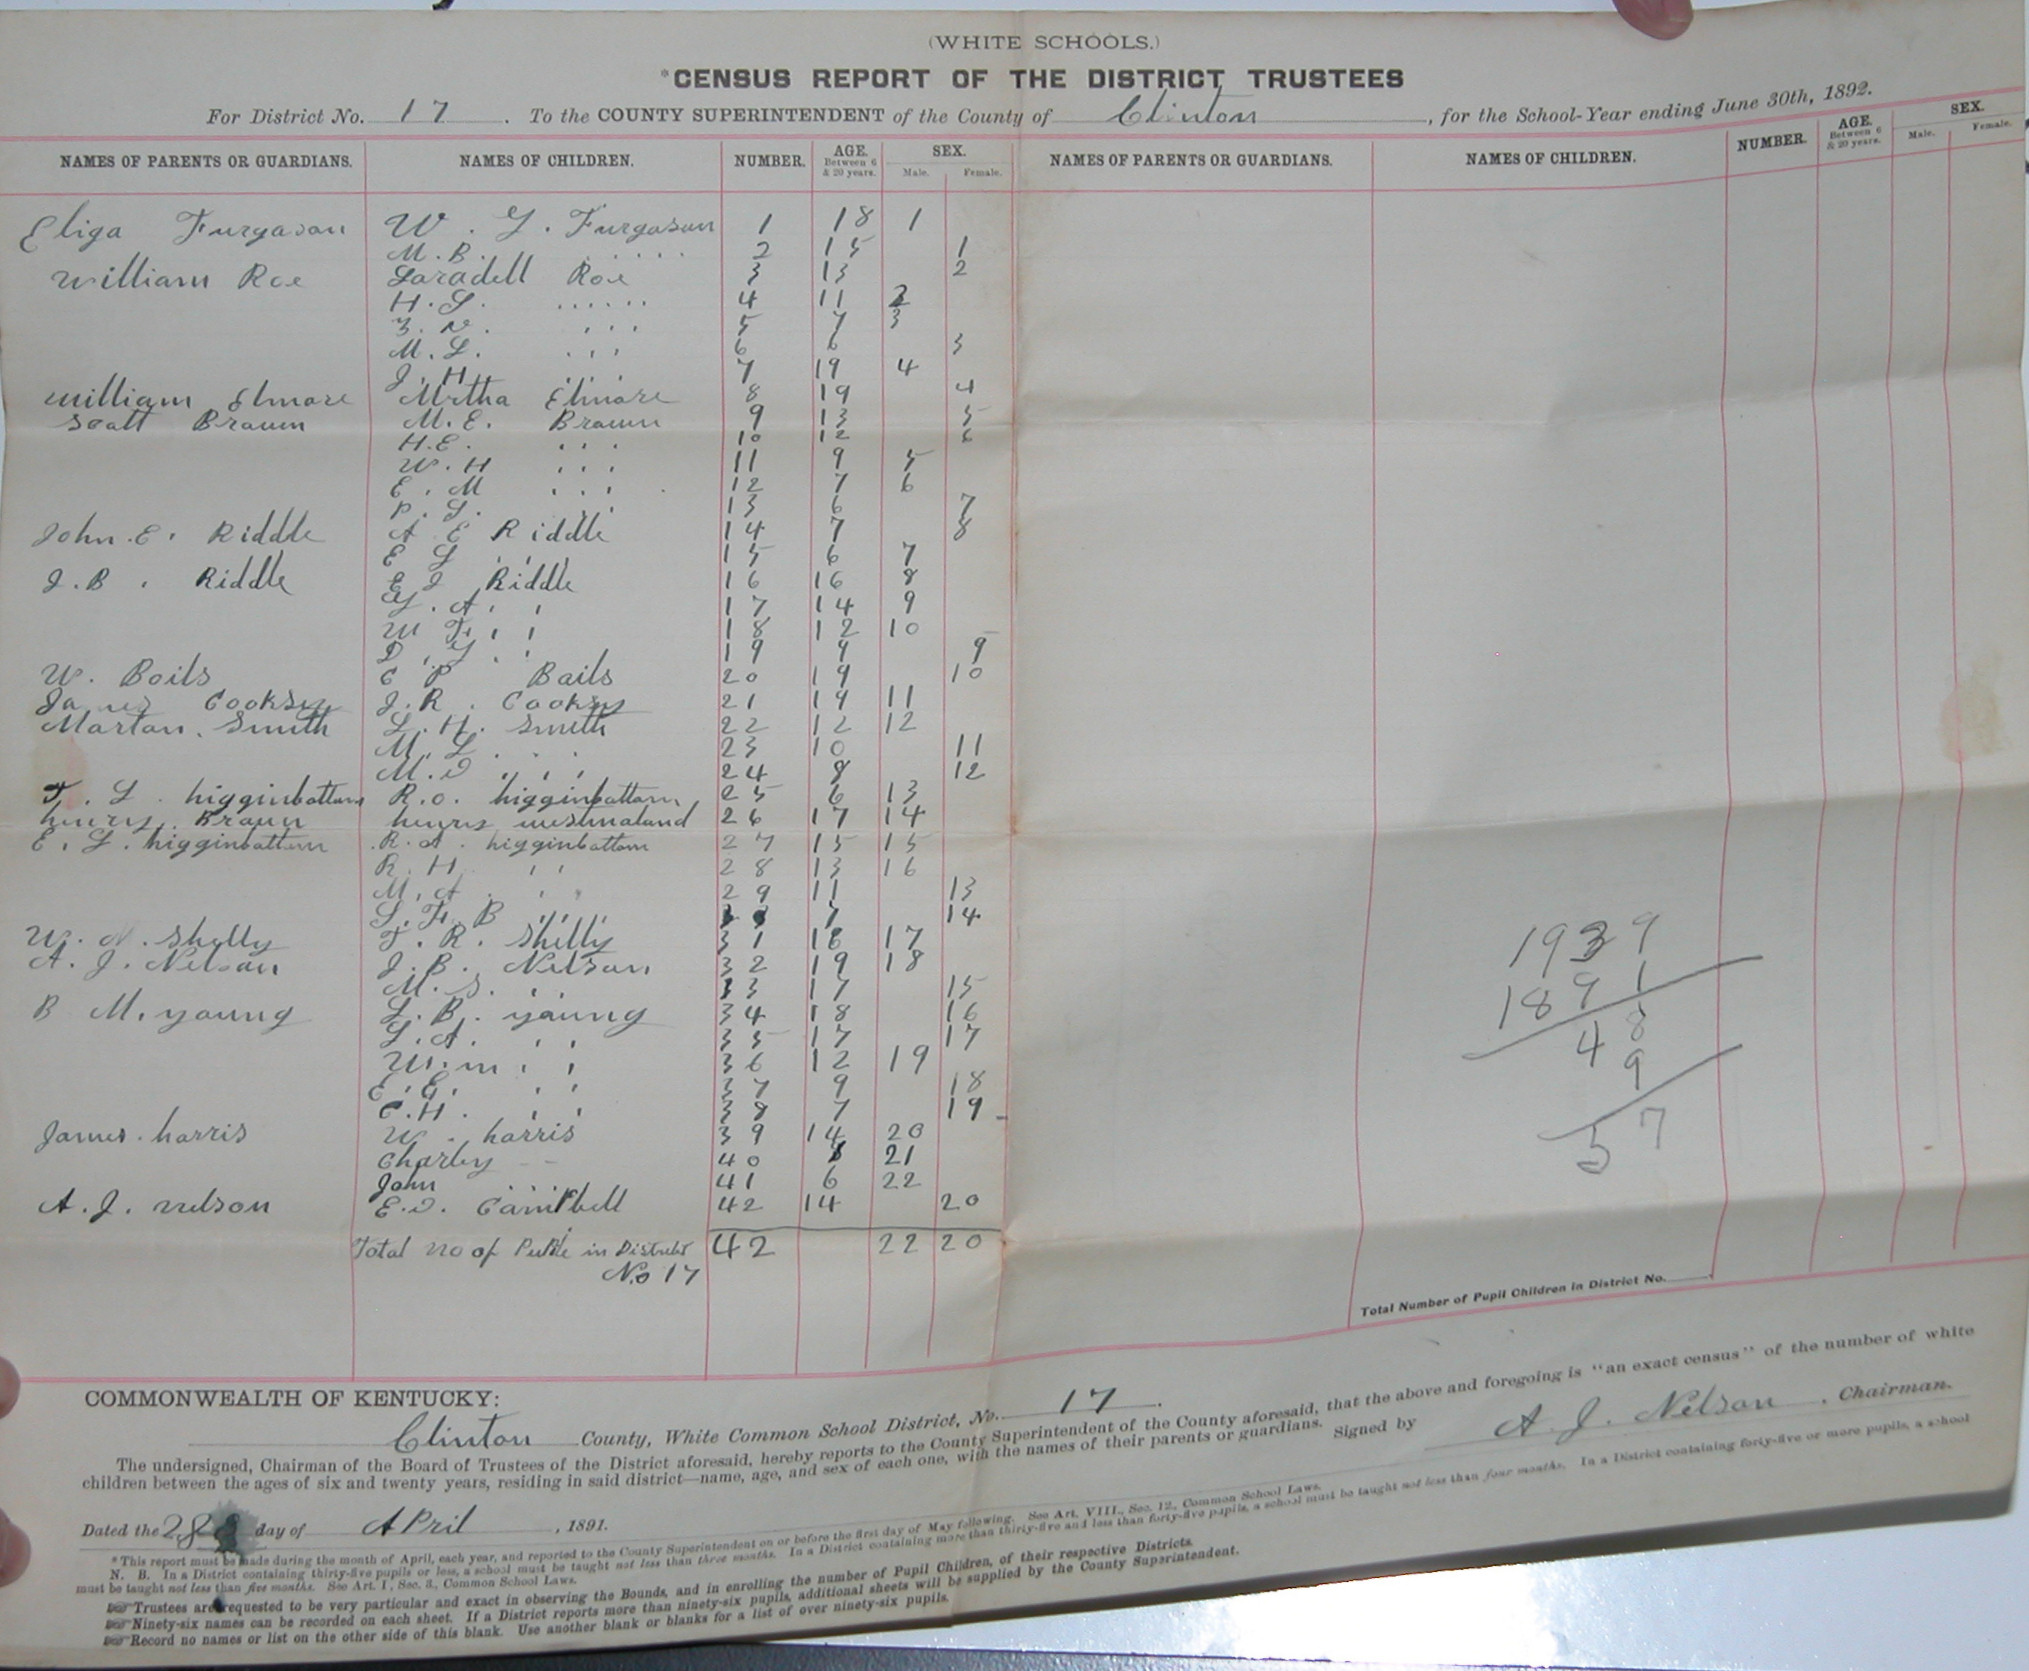 (WHITE SCHOOLS.)
*CENSUS REPORT OF THE DISTRICT TRUSTEES
For District No. 17. To the COUNTY SUPERINTENDENT of the County of Clinton, for the School-Year ending June 30th, 1892.
NAMES OF PARENTS OR GUARDIANS. NAMES OF CHILDREN. NUMBER. AGE. Between 6 & 20 years. SEX. Male. Female. NAMES OF PARENTS OR GUARDIANS. NAMES OF CHILDREN. NUMBER. AGE. Between 6 & 20 years. SEX. Male. Female.
Eliga Furgason W. Y. Furgason 1 18 1
M. B. . . . . . 2 15 1
William Roe Laradell Roe 3 13 2
H. L. . . . . . . 4 11 2
Z. N. . . . 5 7 3
M. L. . . . 6 6 3
J. H. . . . 7 19 4
William Elmore Mrtha Elmore 8 19 4
Scott Brown M. E. Brown 9 13 5
H. E. . . . 10 12 6
W. H . . . 11 9 5
E. M . . . 12 7 6
P. L. . . 13 6 7
John. E. Riddle A E Riddle 14 7 8
E L . . 15 6 7
J. B. Riddle E J Riddle 16 16 8
Y. A. . 17 14 9
W F. . . 18 12 10
D. Y. . . 19 9 9
W. Boils C P Bails 20 19 10
James Cooksey J. R. Cooksey 21 19 11
Martan. Smith L. H. Smith 22 12 12
M. L. . . 23 10 11
M. D . . . 24 8 12
T. L. higginbottam R. O. higginbottam 25 6 13
henry. Braun henry westmaland 26 17 14
E. L. higginbottam R. A. higginbottam 27 15 15
R. H. . . 28 13 16
M. A. . . 29 11 13
L. F. B . . . 7 14
W. N. Shelly T. R. Shelly 31 18 17
A. J. Nelson J. B. Nelson 32 19 18
M. S. . . 33 17 15
B M. young L. B. young 34 18 16
L. A. . . 35 17 17
W. m . . 36 12 19
E. E. . . 37 9 18
C. H. . . 38 7 19
James. harris W. harris 39 14 20
Charley - - 40 8 21
John . . . 41 6 22
A. J. nelson E. D. Campbell 42 14 20
Total no of Pupile in District 42 22 20
No 17
1939
1891
48
9
57
Total Number of Pupil Children in District No.
COMMONWEALTH OF KENTUCKY:
Clinton County, White Common School District, No. 17.
The undersigned, Chairman of the Board of Trustees of the District aforesaid, hereby reports to the County Superintendent of the County aforesaid, that the above and foregoing is "an exact census" of the number of white
children between the ages of six and twenty years, residing in said district—name, age, and sex of each one, with the names of their parents or guardians.
Signed by A J. Nelson, Chairman.
Dated the 28 day of April, 1891.
*This report must be made during the month of April, each year, and reported to the County Superintendent on or before the first day of May following. See Art. VIII., Sec. 12, Common School Laws.
N. B. In a District containing thirty-five pupils or less, a school must be taught not less than three months. In a District containing more than thirty-five and less than forty-five pupils, a school must be taught not less than four months. In a District containing forty-five or more pupils, a school
must be taught not less than five months. See Art. I, Sec. 3, Common School Laws.
Trustees are requested to be very particular and exact in observing the Bounds, and in enrolling the number of Pupil Children, of their respective Districts.
Ninety-six names can be recorded on each sheet. If a District reports more than ninety-six pupils, additional sheets will be supplied by the County Superintendent.
Record no names or list on the other side of this blank. Use another blank or blanks for a list of over ninety-six pupils.